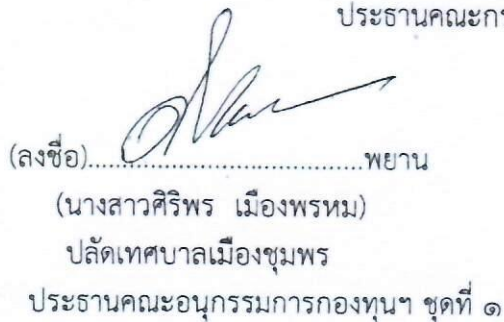 ประธานคณะกร
(ลงชื่อ)....................................พยาน
(นางสาวศิริพร เมืองพรหม)
ปลัดเทศบาลเมืองชุมพร
ประธานคณะอนุกรรมการกองทุนฯ ชุดที่ ๑